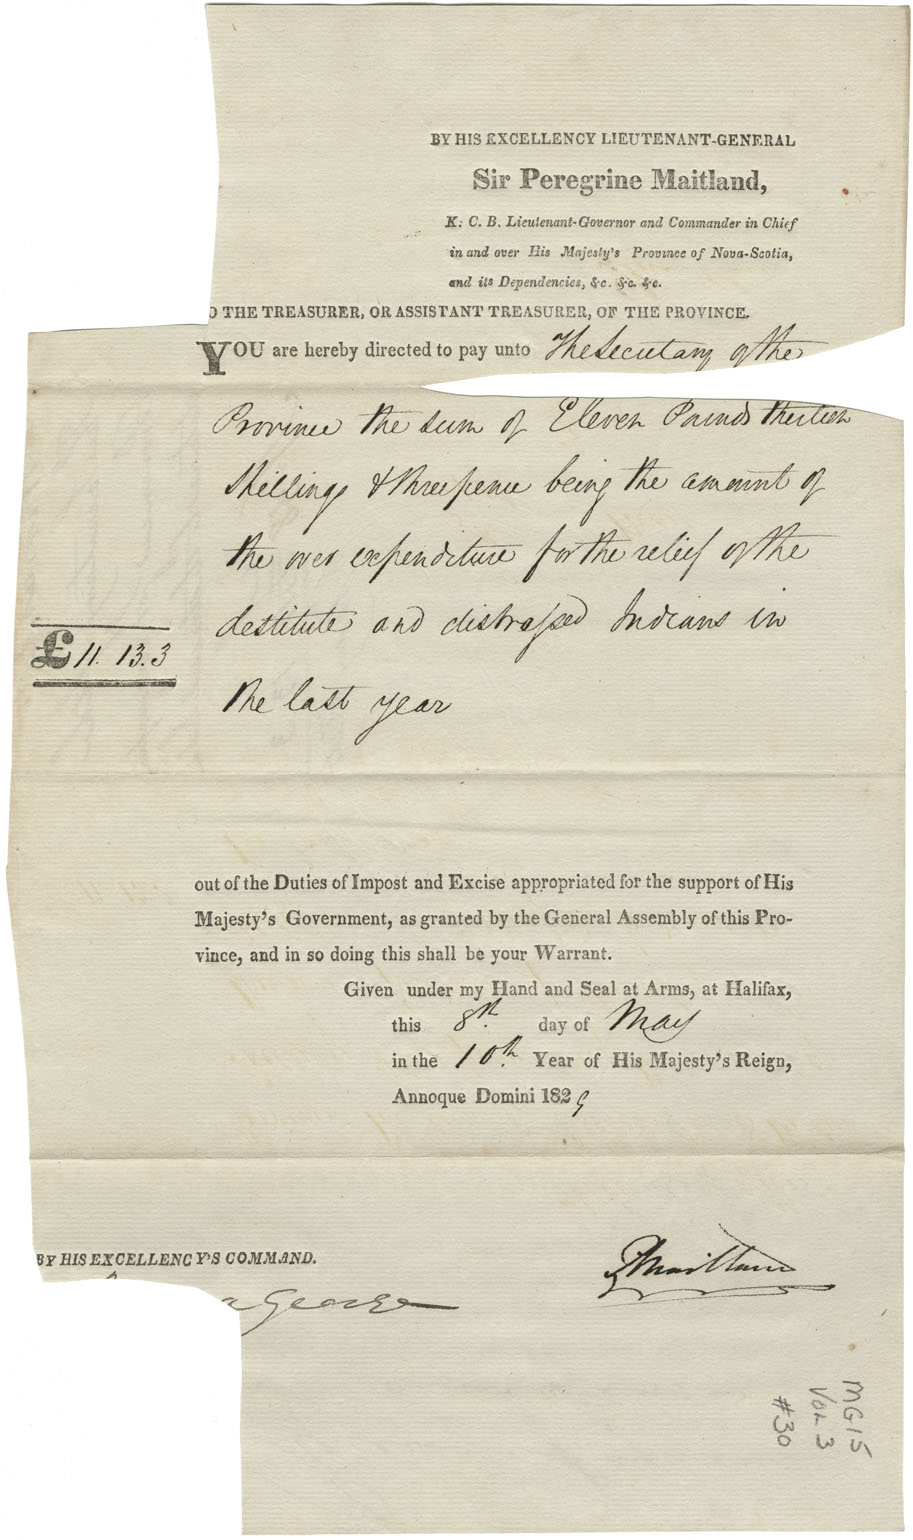 BY HIS EXCELLENCY LIEUTENANT-GENERAL
Sir Peregrine Maitland,
K. C. B. Lieutenant-Governor and Commander in Chief
in and over His Majesty's Province of Nova-Scotia,
and its Dependencies, &c. &c. &c.
O THE TREASURER, OR ASSISTANT TREASURER, OF THE PROVINCE.
YOU are hereby directed to pay unto The Secretary of the
Province the sum of Eleven Pounds thirteen
Shillings & threepence being the amount of
the over expenditure for the relief of the
destitute and distressed Indians in
£ 11. 13. 3
the last year
out of the Duties of Impost and Excise appropriated for the support of His
Majesty's Government, as granted by the General Assembly of this Pro-
vince, and in so doing this shall be your Warrant.
Given under my Hand and Seal at Arms, at Halifax,
this 8th. day of May
in the 10th. Year of His Majesty's Reign,
Annoque Domini 1829
BY HIS EXCELLENCY'S COMMAND.
PMaitland
George
MG15
Vol 3
#30